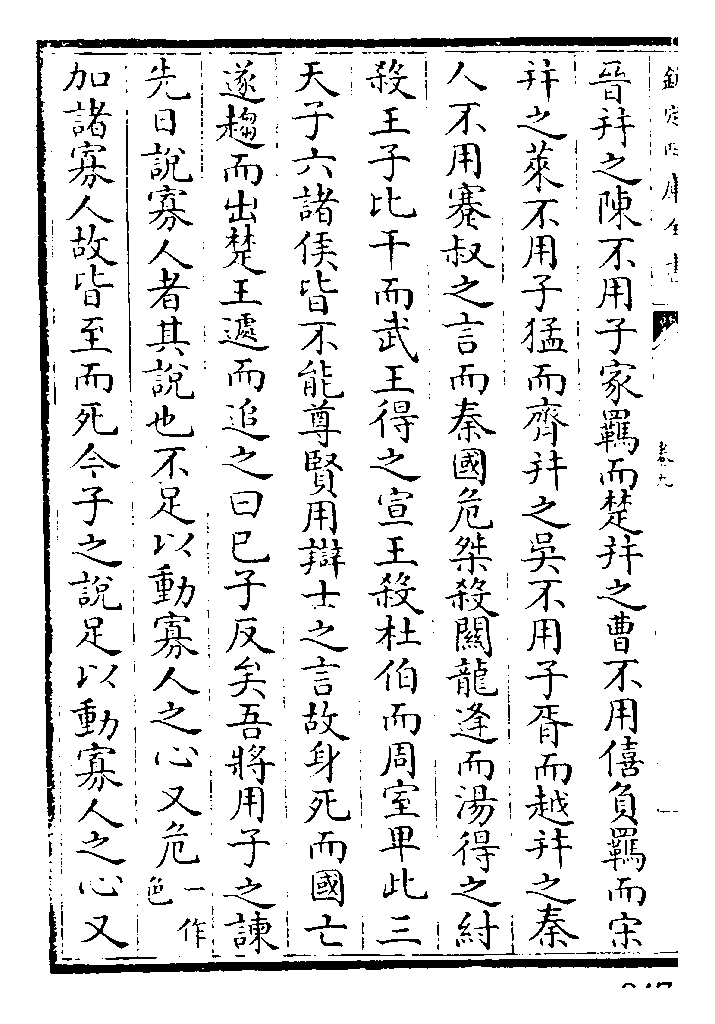 欽定四庫全書
卷九
晉幷之陳不用子家羈而楚幷之曹不用僖負羈而宋
幷之萊不用子猛而齊幷之吳不用子胥而越幷之秦
人不用蹇叔之言而秦國危桀殺關龍逢而湯得之紂
殺王子比干而武王得之宣王殺杜伯而周室卑此三
天子六諸侯皆不能尊賢用辯士之言故身死而國亡
遂趨而出楚王遽而追之曰已子反矣吾將用子之諫
先日說寡人者其說也不足以動寡人之心又危一作色
加諸寡人故皆至而死今子之說足以動寡人之心又